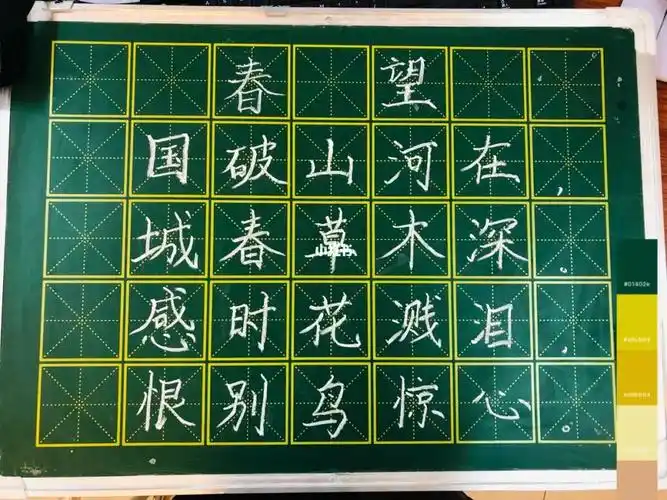 春望
国破山河在，
城春草木深。
感时花溅泪。
恨别鸟惊心。
小红书
#01402e